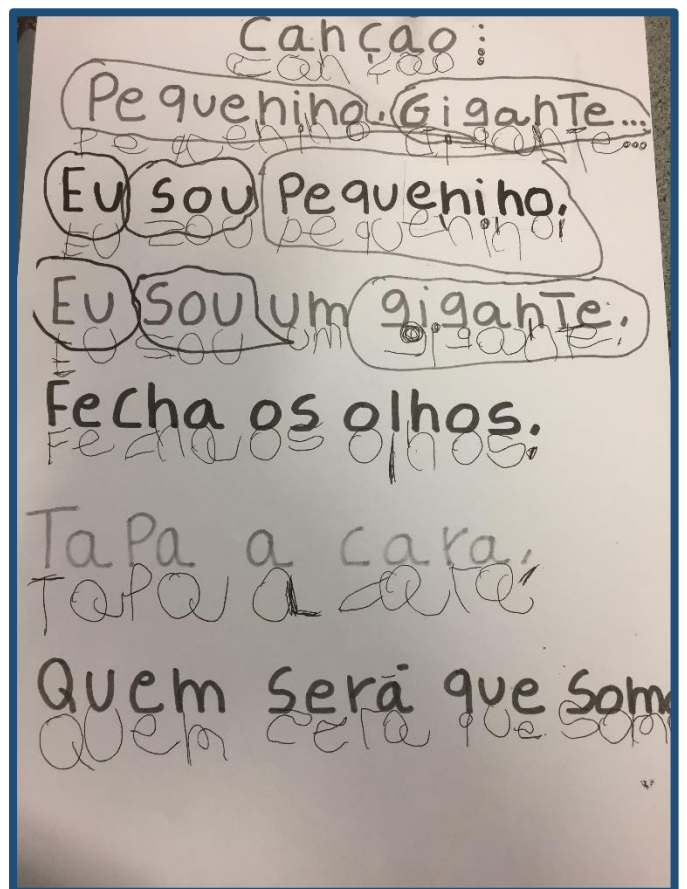 Canção:
Canção
Pequenino. Gigante...
Pequenino Gigante...
Eu sou Pequenino.
EU sou pequenino.
Eu sou um gigante.
EU sou um gigante.
Fecha os olhos.
Fecha os olhos.
Tapa a cara.
TaPa a cara
Quem será que som
Quem cera que som